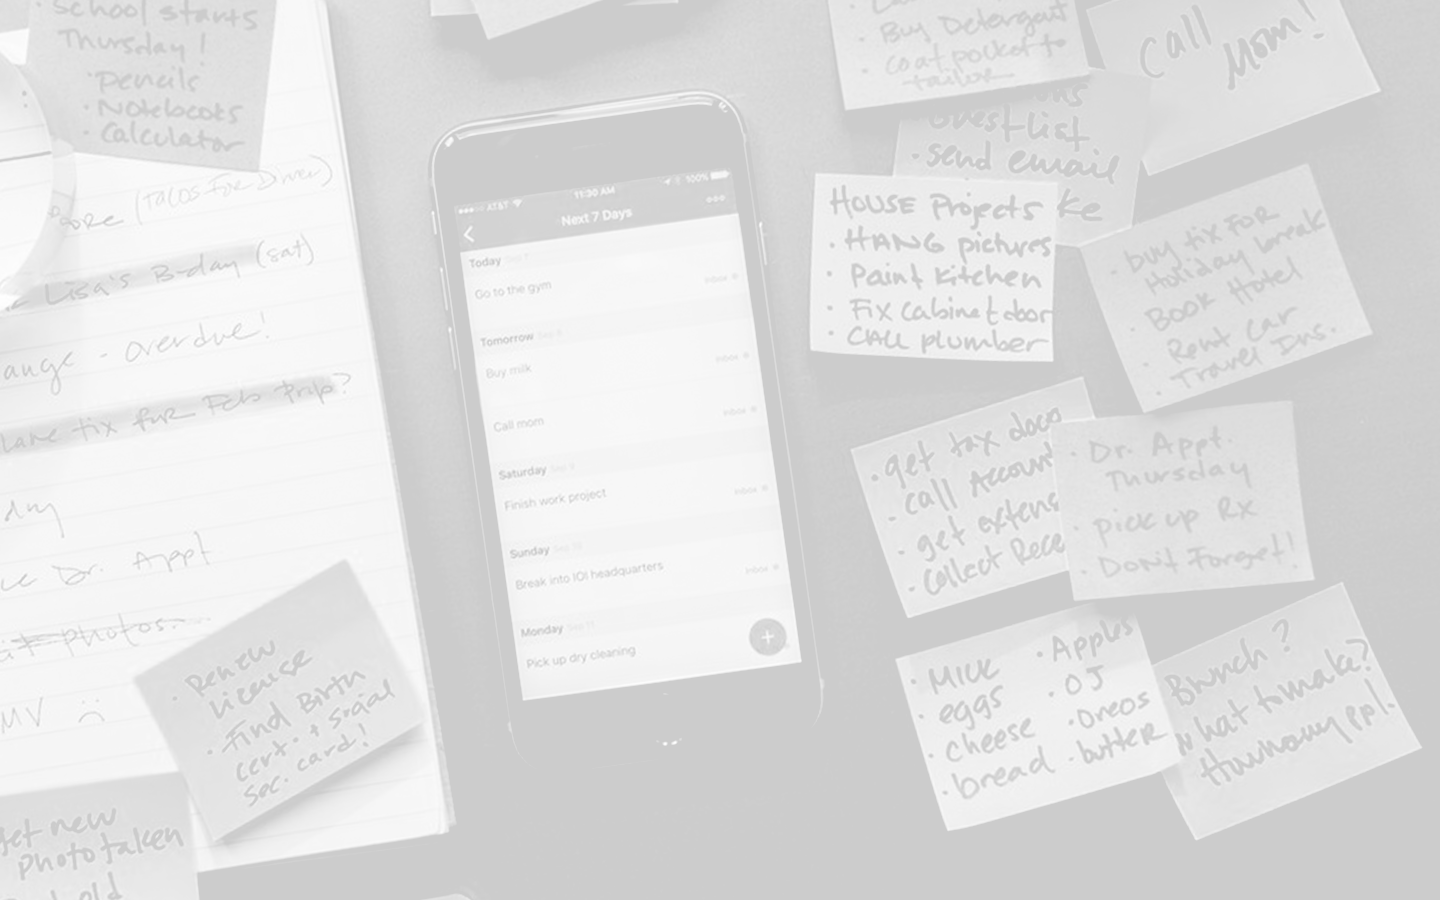 · School starts
Thursday!
· Pencils
· Notebooks
· Calculator
(Tacos for Diner)
Lisa's B-day (sat)
- overdue!
tix for Feb trip?
Dr. Appt
photos.
MV ☹
· Renew
License
· Find Birth
cert. + social
sec. card!
get new
photo taken
old
AT&T 11:30 AM 100%
Next 7 Days
Today
Go to the gym Inbox
Tomorrow
Buy milk Inbox
Call mom Inbox
Saturday
Finish work project Inbox
Sunday
Break into IOI headquarters Inbox
Monday
Pick up dry cleaning
+
· Buy Detergent
· coat pocket to
tailor
Call
Mom!
Guest list
· send email
ke
HOUSE Projects
· HANG pictures
· Paint kitchen
· Fix cabinet door
· CALL plumber
· buy tix FOR
Holiday break
· BOOK Hotel
· Rent car
· Travel Ins.
· get tax docs
· call Account
· get extens
· Collect Rece
· Dr. Appt.
Thursday
· pick up Rx
· DONT Forget!
· MILK
· eggs
· cheese
· bread
· Apples
· OJ
· Oreos
· butter
Brunch?
what to make?
How many ppl.